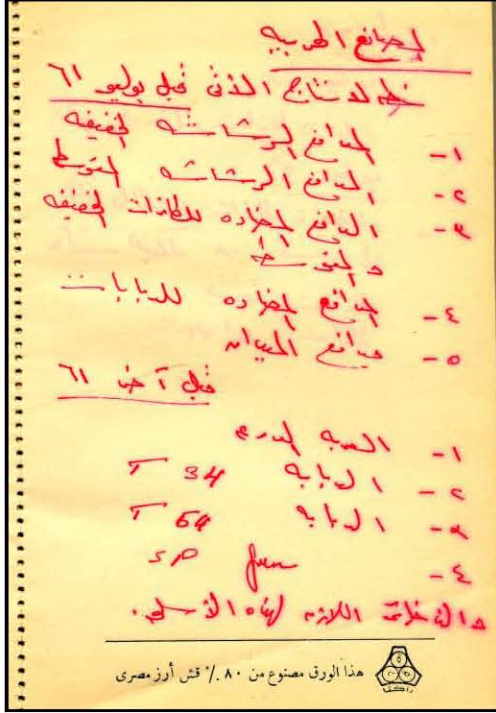 المصانع الحربيه
خط الانتاج الآتى قبل يوليو ٦١
١- المدافع الرشاشه الخفيفه
٢- المدافع الرشاشه المتوسطه
٣- المدافع المضاده للطائرات الخفيفه
والمتوسطه
٤- المدافع المضاده للدبابات
٥- مدافع الميدان
قبل آخر ٦١
١- العربه المدرعه
٢- الدبابه T 34
٣- الدبابه T 54
٤-
والذخائر اللازمه لهذه الأسلحه.
هذا الورق مصنوع من ٨٠ ٪ قش أرز مصرى
راكتا